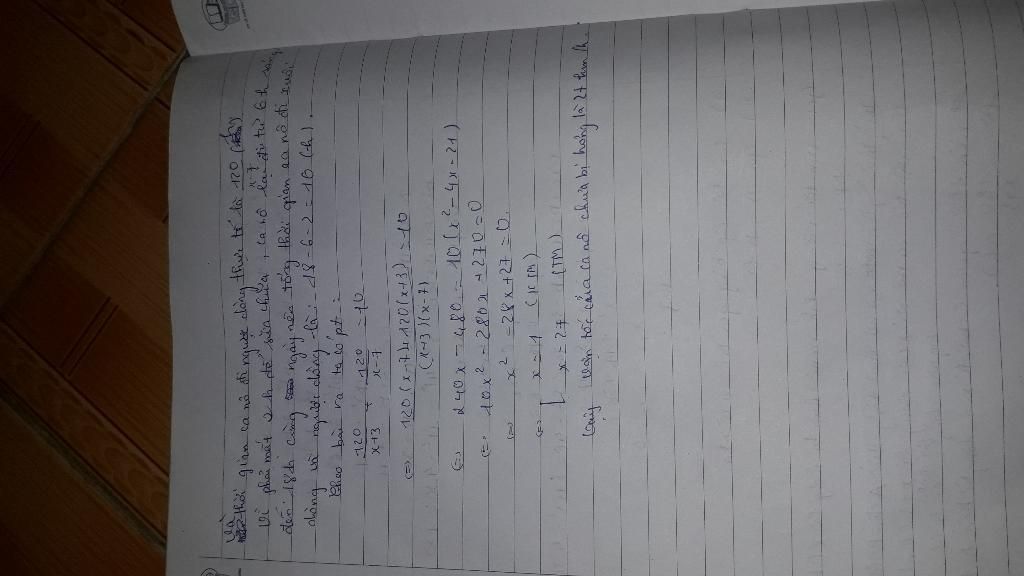 và thời gian ca nô đi ngược dòng thực tế là 120/(x-7) (h)
Vì phải mất 2h để sửa chữa, ca nô lại đi từ 6h sáng
đến 18h cùng ngày nên tổng thời gian ca nô đi xuôi
dòng và ngược dòng là: 18-6-2=10 (h).
Theo bài ra ta có pt:
120/(x+3) + 120/(x-7) = 10
⇔ (120(x-7)+120(x+3))/((x+3)(x-7)) = 10
⇔ 240x - 480 = 10(x² - 4x - 21)
⇔ 10x² - 280x + 270 = 0
⇔ x² - 28x + 27 = 0
⇔ [ x = 1 (KTM)
x = 27 (TM)
Vậy vận tốc của ca nô chưa bị hỏng là 27 km/h.